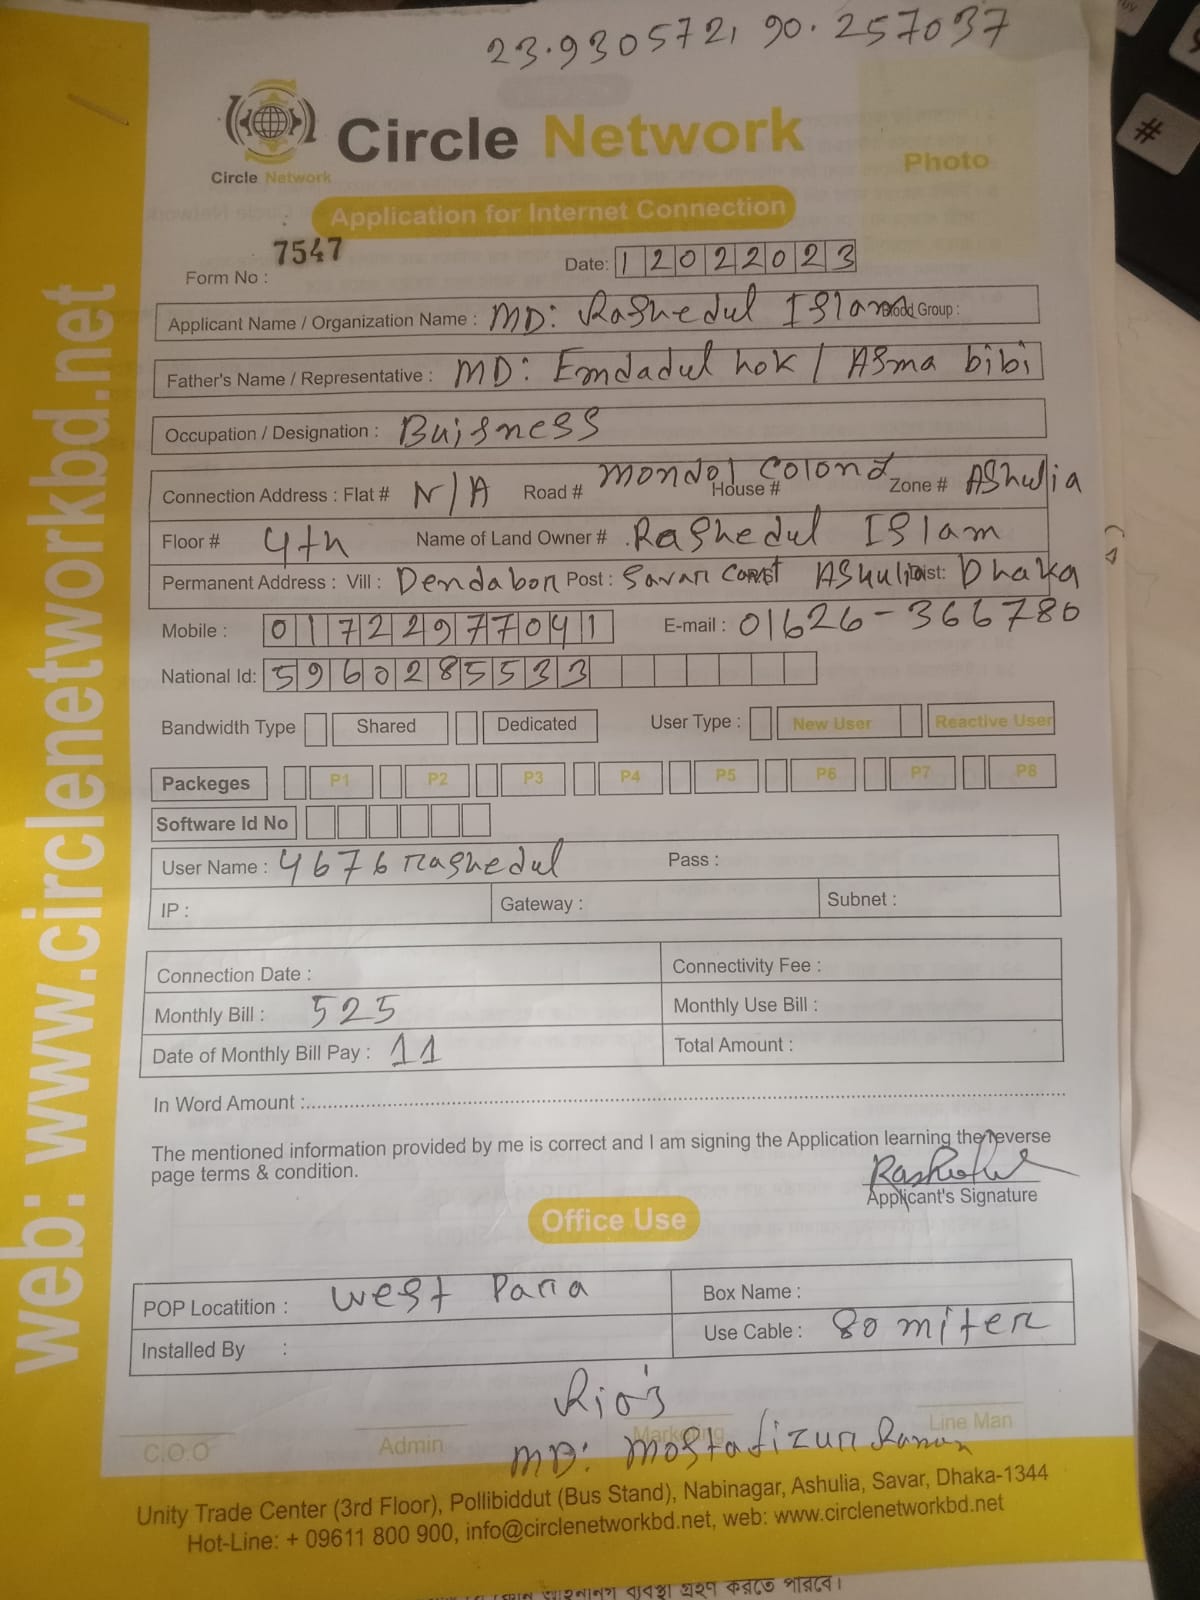 23.9305721 90.257037
Circle Network
Circle Network
Photo
Application for Internet Connection
Form No : 7547
Date: 12022023
Applicant Name / Organization Name : MD: Rashedul Islam Blood Group :
Father's Name / Representative : MD: Emdadul hok / Asma bibi
Occupation / Designation : Buisness
Connection Address : Flat # N/A Road # Mondol Colond House # Zone # Ashulia
Floor # 4th Name of Land Owner # Rashedul Islam
Permanent Address : Vill : Dendabon Post : Savar Cannt Ashulia Dist: Dhaka
Mobile : 01722977041 E-mail : 01626-366780
National Id: 5960285533
Bandwidth Type Shared Dedicated User Type : New User Reactive User
Packeges P1 P2 P3 P4 P5 P6 P7 P8
Software Id No
User Name : 4676rashedul Pass :
IP : Gateway : Subnet :
Connection Date : Connectivity Fee :
Monthly Bill : 525 Monthly Use Bill :
Date of Monthly Bill Pay : 11 Total Amount :
In Word Amount :
The mentioned information provided by me is correct and I am signing the Application learning the reverse
page terms & condition.
Applicant's Signature
Office Use
POP Locatition : West Para Box Name :
Installed By : Use Cable : 80 miter
C.O.O Admin Marketing Line Man
MD: Mostafizur
Unity Trade Center (3rd Floor), Pollibiddut (Bus Stand), Nabinagar, Ashulia, Savar, Dhaka-1344
Hot-Line: + 09611 800 900, info@circlenetworkbd.net, web: www.circlenetworkbd.net
web: www.circlenetworkbd.net
ব্যবস্থা গ্রহণ করতে পারবে।
#